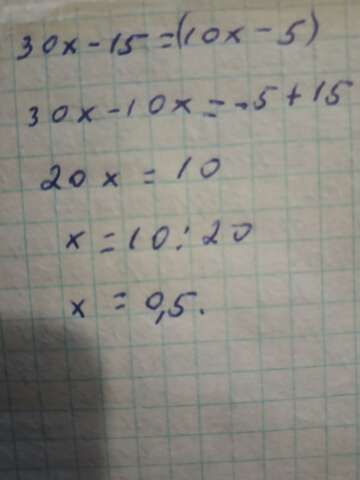 30x-15=(10x-5)
30x-10x=-5+15
20x=10
x=10:20
x=0,5.